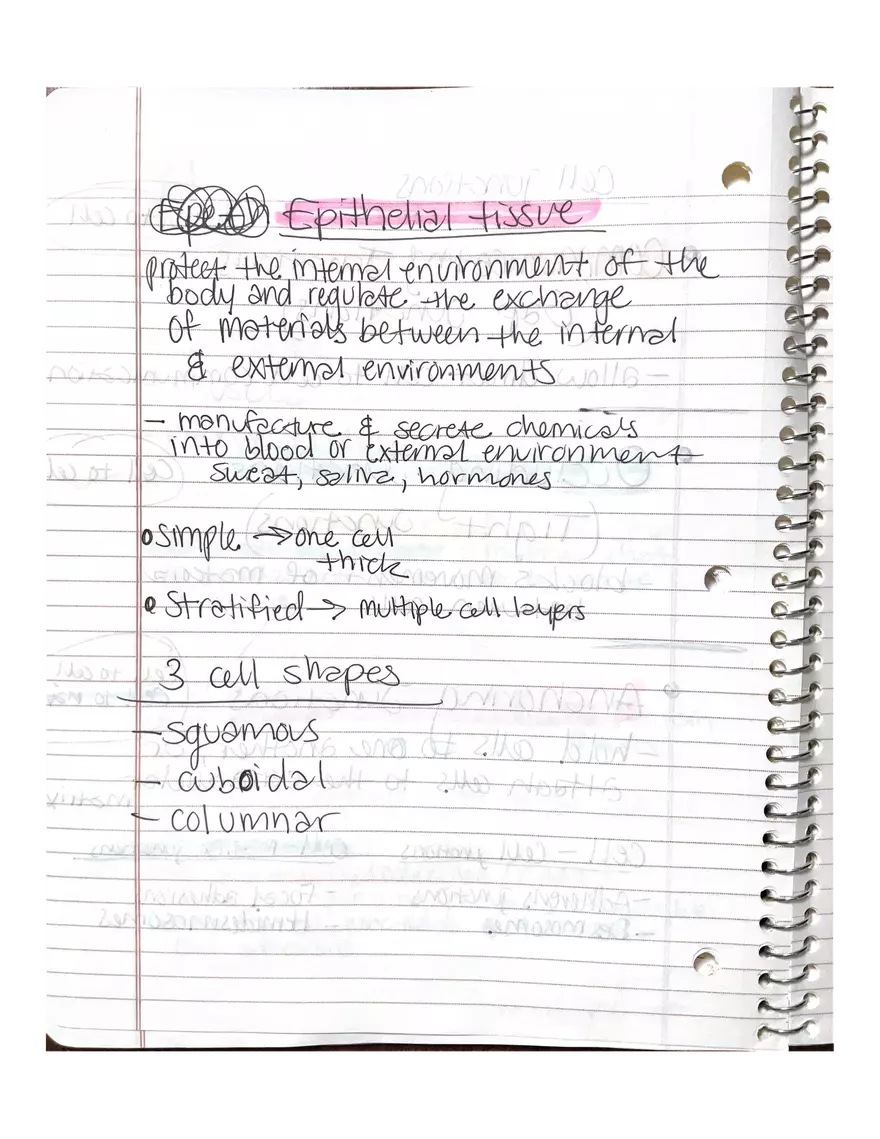 Epithelial tissue
protect the internal environment of the
body and regulate the exchange
of materials between the internal
& external environments
- manufacture & secrete chemicals
into blood or external environment
sweat, saliva, hormones
• Simple → one cell
thick
• Stratified → multiple cell layers
3 cell shapes
- squamous
- cuboidal
- columnar